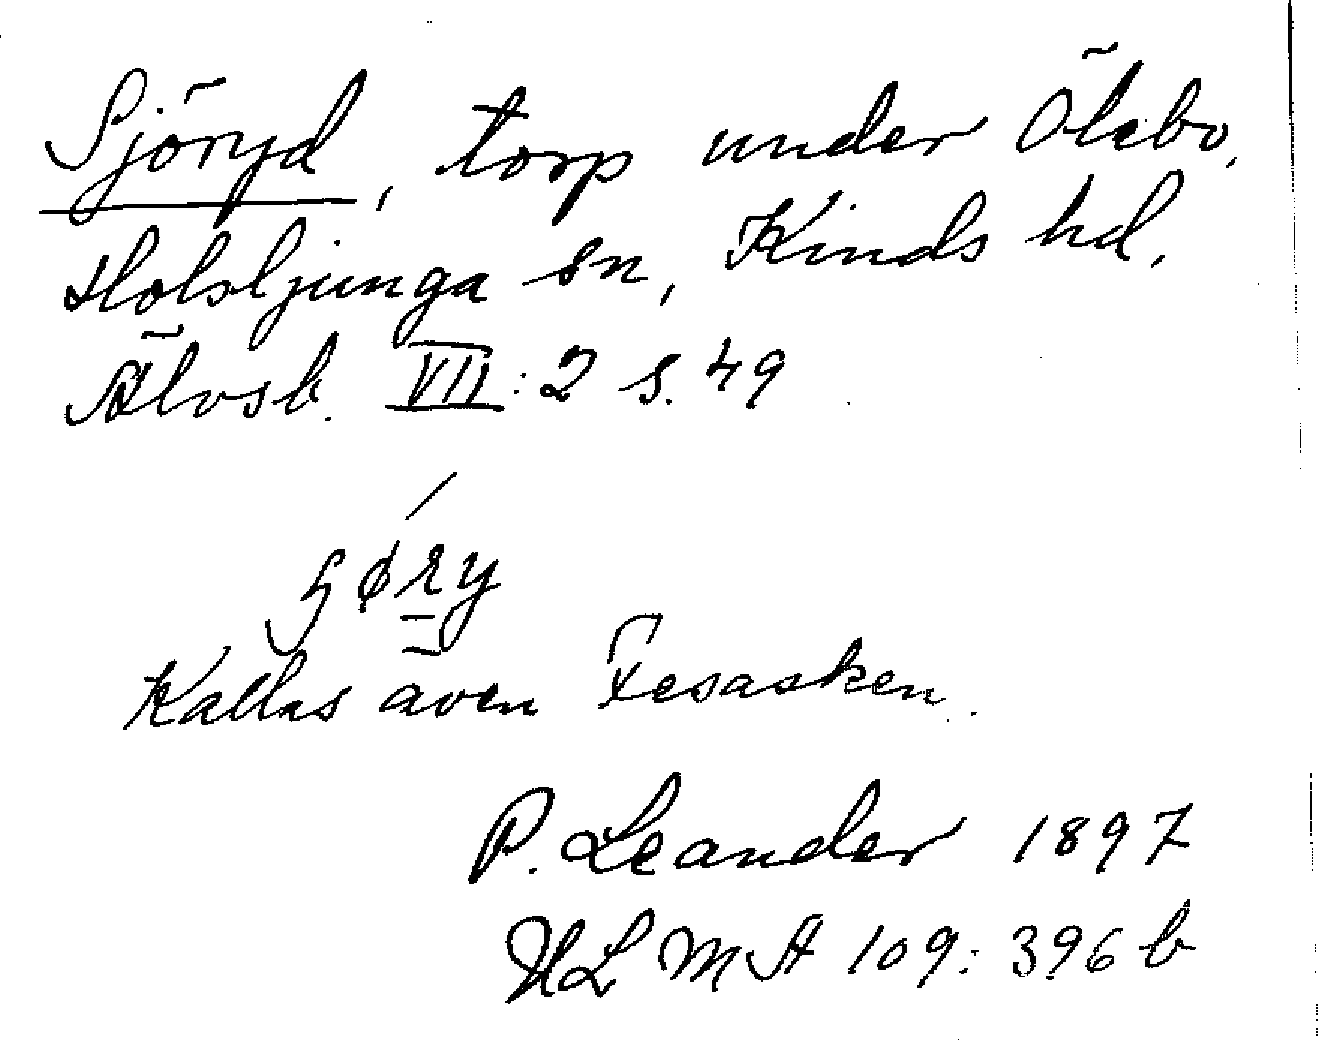 Sjöryd, torp under Ölebo,
Holsljunga sn, Kinds hd,
Älvsb. VII:2 s. 49
Kallas även Fesasken.
P. Leander 1897
ULMA 109:396 b